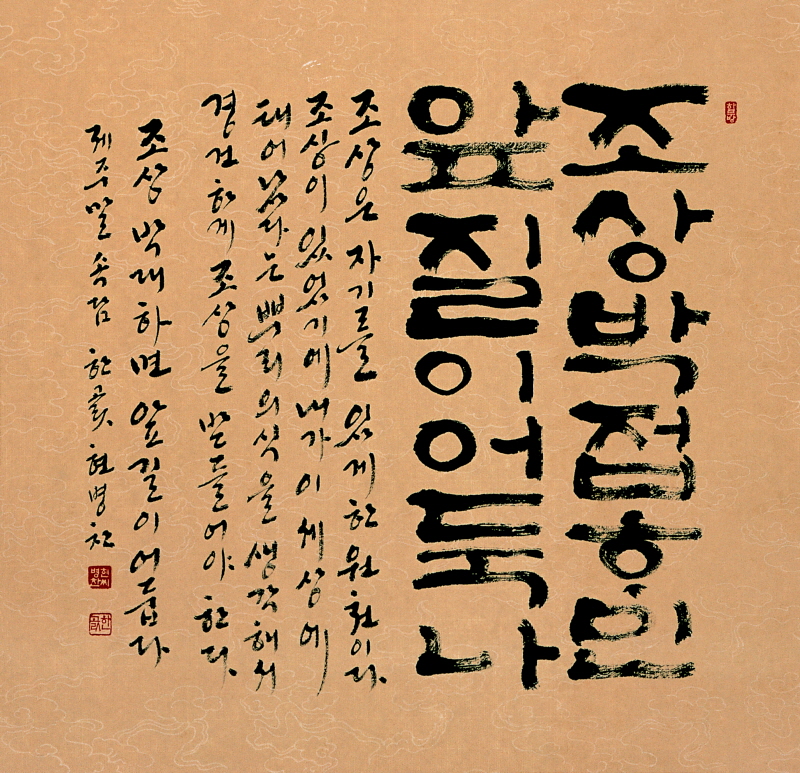 조상박접ᄒᆞ민
앞질이어둑나
조상은 자기를 있게 한 원천이다.
조상이 있었기에 내가 이 세상에
태어났다는 뿌리의식을 생각해서
경건하게 조상을 받들어야 한다.
조상 박대하면 앞길이 어둡다
제주말 속담 한곬 현병찬